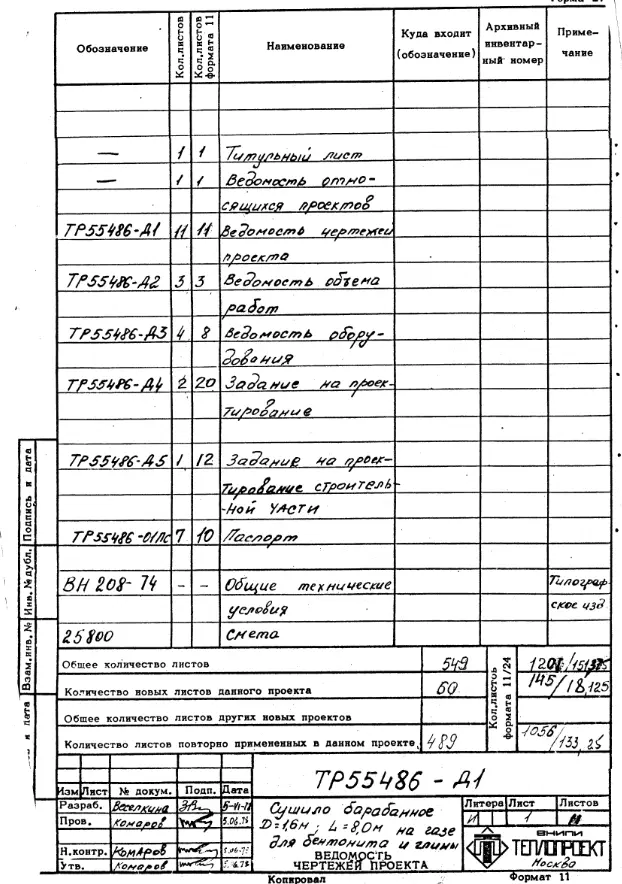 Форма 2.
Обозначение Кол.листов Кол.листов формата 11 Наименование Куда входит (обозначение) Архивный инвентарный номер Примечание
— 1 1 Титульный лист
— 1 1 Ведомость отно-
сящихся проектов
ТР55486-Д1 11 11 Ведомость чертежей
проекта
ТР55486-Д2 3 3 Ведомость объема
работ
ТР55486-Д3 4 8 Ведомость обору-
дования
ТР55486-Д4 2 20 Задание на проек-
тирование
ТР55486-Д5 1 12 Задание на проек-
тирование строитель-
-ной части
ТР55486-01ПС 7 10 Паспорт
ВН 208-74 – – Общие технические Типограф-
условия ское изд
25800 Смета
Общее количество листов 549
Количество новых листов данного проекта 60 145/18,125
Общее количество листов других новых проектов
Количество листов повторно примененных в данном проекте 489 1056/133,25
Кол.листов формата 11/24
Подпись и дата
Инв.№дубл.
Взам.инв.№
и дата
ТР55486-Д1
Изм Лист № докум. Подп. Дата
Разраб. Веселкина
Пров. Комаров 5.06.78
Н.контр. Комаров
Утв. Комаров
Сушило барабанное
D=1,6м; L=8,0м на газе
для бентонита и глины
ВЕДОМОСТЬ
ЧЕРТЕЖЕЙ ПРОЕКТА
Литера Лист Листов
И 1
ВНИПИ
ТЕПЛОПРОЕКТ
Москва
Копировал Формат 11